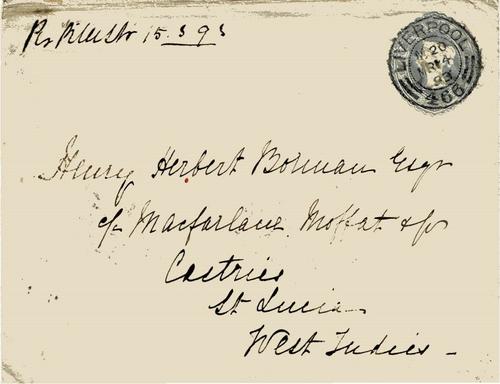 15.3 93
LIVERPOOL
20
MR 4
93
466
Henry Herbert Bowman Esqr
c/o Macfarlane Moffat & Co
Castries
St Lucia
West Indies